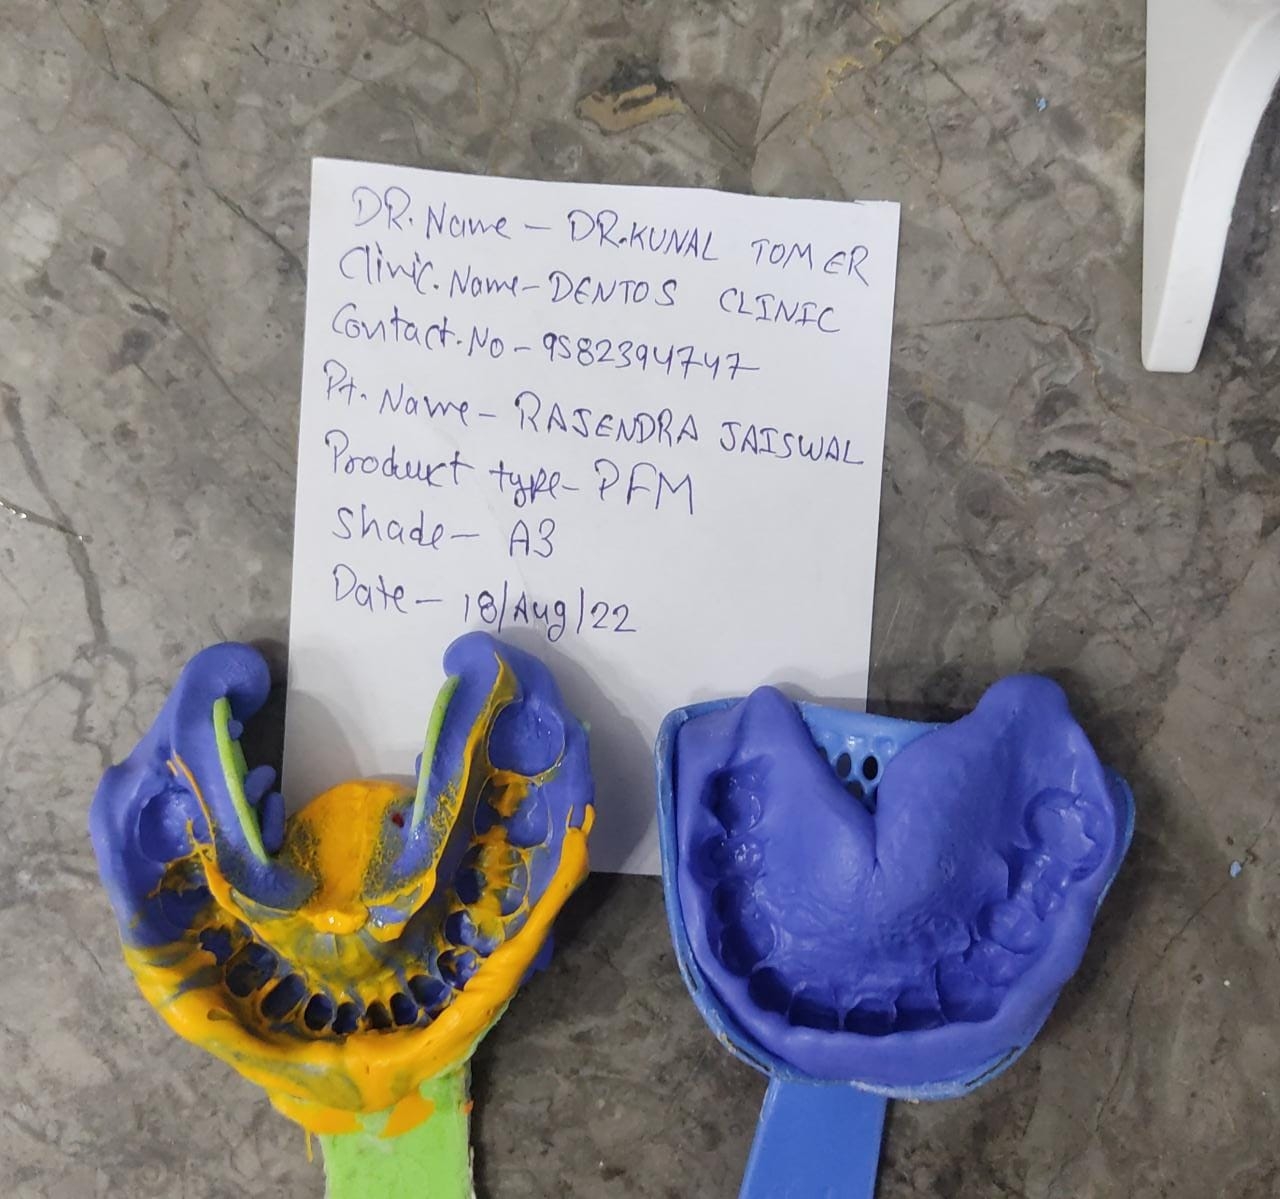 DR. Name - DR.KUNAL TOMER
Clinic. Name - DENTOS CLINIC
Contact. No - 9582394747
Pt. Name - RAJENDRA JAISWAL
Product type - PFM
Shade - A3
Date - 18/Aug/22